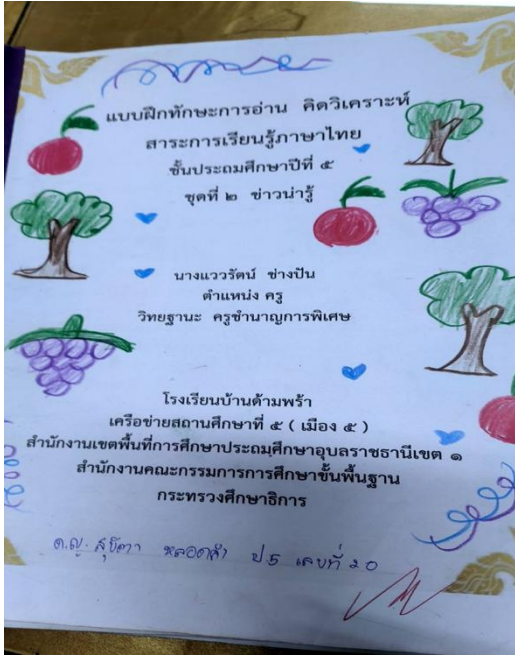 แบบฝึกทักษะการอ่าน คิดวิเคราะห์
สาระการเรียนรู้ภาษาไทย
ชั้นประถมศึกษาปีที่ ๕
ชุดที่ ๒ ข่าวน่ารู้
นางแววรัตน์ ช่างปัน
ตำแหน่ง ครู
วิทยฐานะ ครูชำนาญการพิเศษ
โรงเรียนบ้านด้ามพร้า
เครือข่ายสถานศึกษาที่ ๕ ( เมือง ๕ )
สำนักงานเขตพื้นที่การศึกษาประถมศึกษาอุบลราชธานีเขต ๑
สำนักงานคณะกรรมการการศึกษาขั้นพื้นฐาน
กระทรวงศึกษาธิการ
ด.ญ. หลอดคำ ป5 เลขที่ 20